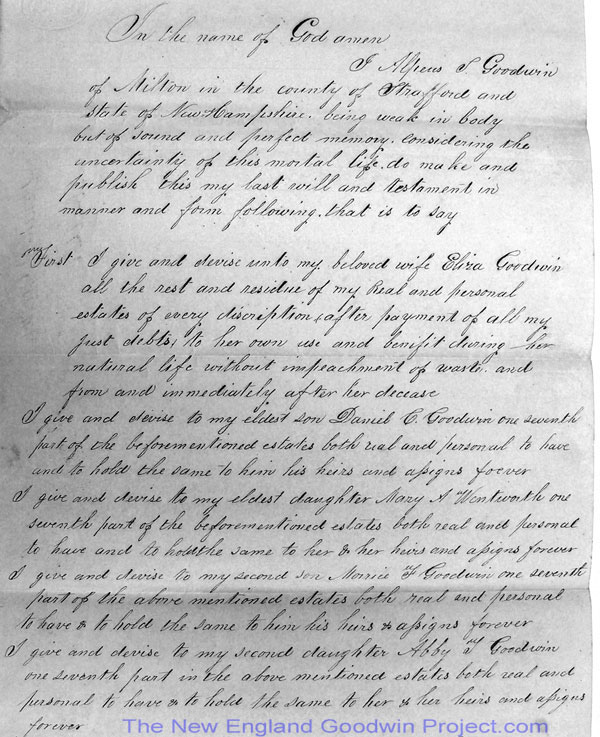 In the name of God amen
I Alpeus S. Goodwin
of Milton in the county of Strafford and
state of New Hampshire. being weak in body
but of sound and perfect memory. considering the
uncertainty of this mortal life. do make and
publish this my last will and testament in
manner and form following. that is to say
my
First I give and devise unto my beloved wife Eliza Goodwin
all the rest and residue of my Real and personal
estates of every discription, after payment of all my
just debts, to her own use and benifit during her
natural life without impeachment of waste. and
from and immediately after her decease
I give and devise to my eldest son Daniel C. Goodwin one seventh
part of the beforementioned estates both real and personal to have
and to hold the same to him his heirs and assigns foever
I give and devise to my eldest daughter Mary A Wentworth one
seventh part of the beforementioned estates both real and personal
to have and to hold the same to her & her heirs and assigns forever
I give and devise to my second son Morrice F Goodwin one seventh
part of the above mentioned estates both real and personal
to have & to hold the same to him his heirs & assigns forever
I give and devise to my second daughter Abby F Goodwin
one seventh part in the above mentioned estates both real and
personal to have & to hold the same to her & her heirs and assigns
forever
The New England Goodwin Project.com